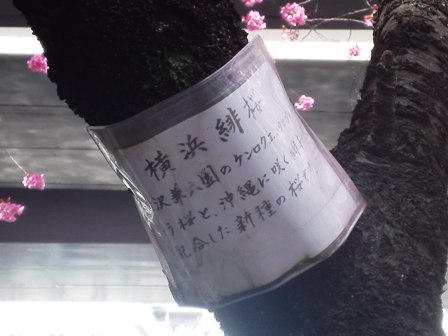 横浜緋桜
沢兼六園のケンロク
う桜と、沖縄に咲く
配合した新種の桜